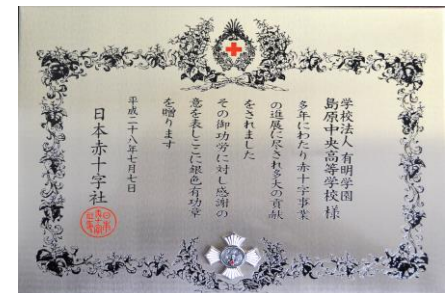 学校法人 有明学園
島原中央高等学校 様
多年にわたり赤十字事業
の進展に尽され多大の貢献
をされました
その御功労に対し感謝の
意を表しここに銀色有功章
を贈ります
平成二十八年七月七日
日本赤十字社